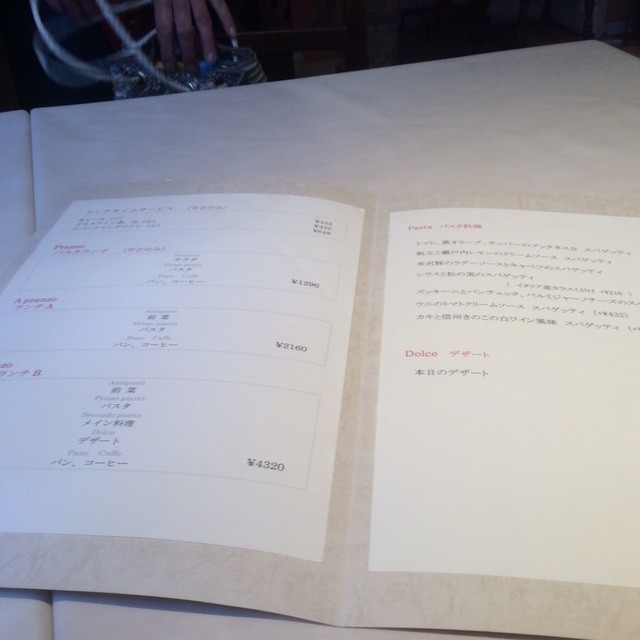 ランチタイムサービス （平日のみ）
¥432
¥648
Pranzo
パスタランチ （平日のみ）
Antipasto
サラダ
Primo piatto
パスタ
Pane Caffe
パン、コーヒー
¥1296
A pranzo
ランチ A
Antipasto
前 菜
Primo piatto
パスタ
Pane Caffe
パン、コーヒー
¥2160
ランチ B
Antipasto
前 菜
Primo piatto
パスタ
Secondo piatto
メイン料理
Dolce
デザート
Pane Caffe
パン、コーヒー
¥4320
Pasta パスタ料理
トマト、黒オリーブ、ケッパーのプッタネスカ スパゲッティ
帆立と瀬戸内レモンのクリームソース スパゲッティ
米沢豚のラグーソースとキャベツのスパゲッティ
シラスと松の実のスパゲッティ
ズッキーニとパンチェッタ、パルミジャーノチーズのス
ウニのトマトクリームソース スパゲッティ (+¥432)
カキと信州きのこの白ワイン風味 スパゲッティ
Dolce デザート
本日のデザート